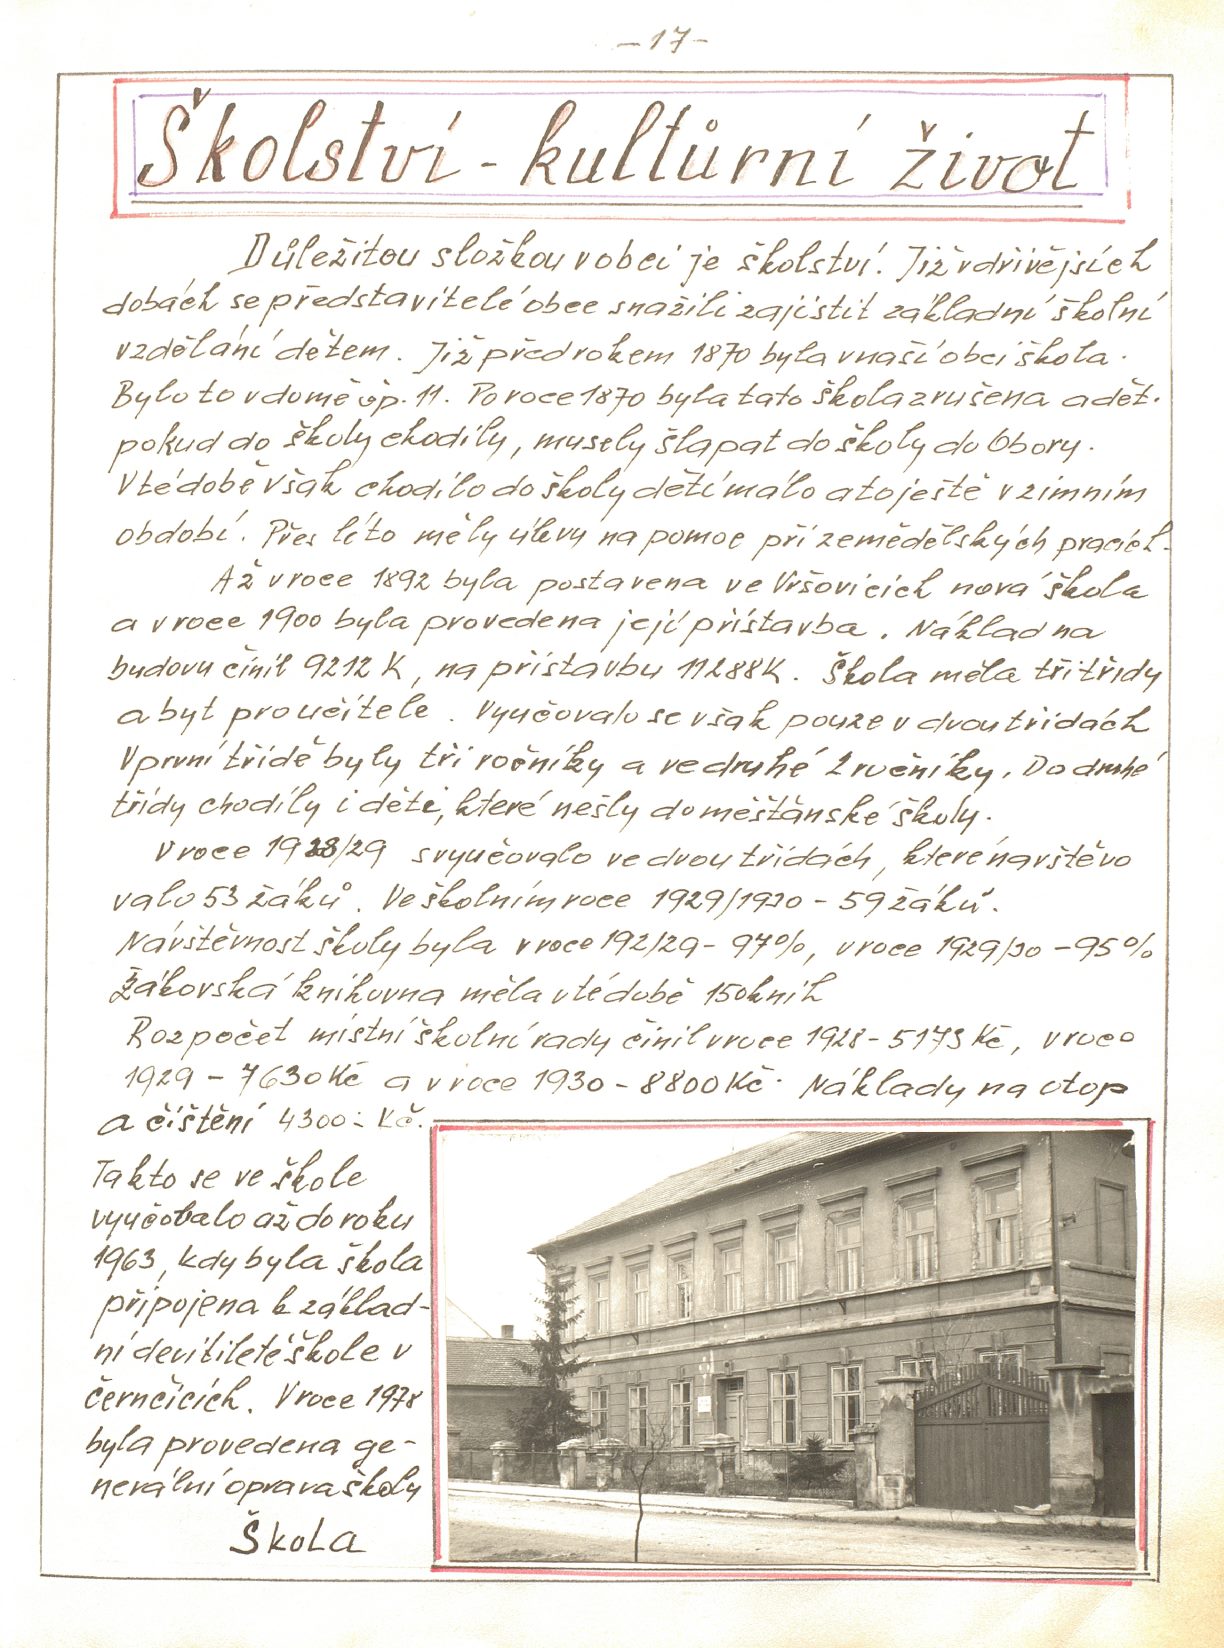 - 17 -
Školství - kultůrní život
Důležitou složkou v obci je školství. Již v dřívějších
dobách se představitelé obce snažili zajistit základní školní
vzdělání dětem. Již před rokem 1870 byla v naší obci škola.
Bylo to v domě čp. 11. Po roce 1870 byla tato škola zrušena a dět.
pokud do školy chodily, musely šlapat do školy do Obory.
V té době však chodilo do školy dětí málo a to ještě v zimním
období. Přes léto měly úlevy na pomoc při zemědělských pracích.
Až v roce 1892 byla postavena ve Vršovicích nová škola
a v roce 1900 byla provedena její přístavba. Náklad na
budovu činil 9212 K, na přístavbu 11288 K. Škola měla tři třídy
a byt pro učitele. Vyučovalo se však pouze v dvou třídách
V první třídě byly tři ročníky a ve druhé 2 ročníky. Do druhé
třídy chodily i děti, které nešly do měšťánské školy.
V roce 1928/29 svyučovalo ve dvou třídách, které navštěvo
valo 53 žáků. Ve školním roce 1929/1930 - 59 žáků.
Návštěvnost školy byla v roce 192/29 - 97%, v roce 1929/30 - 95%
Žákovská knihovna měla v té době 150 knih
Rozpočet místní školní rady činil v roce 1928 - 5173 Kč, v roce
1929 - 7630 Kč a v roce 1930 - 8800 Kč. Náklady na otop
a čištění 4300.- Kč.
Takto se ve škole
vyučovalo až do roku
1963, kdy byla škola
připojena k základ-
ní devítileté škole v
černčicích. V roce 1978
byla provedena ge-
nerální oprava školy
Škola